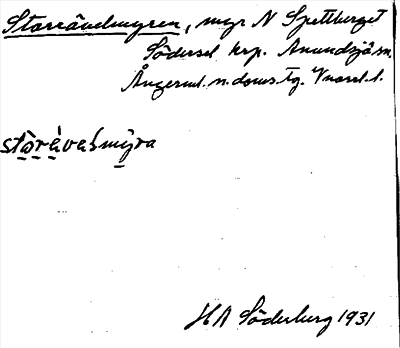 Storrävelmyren, myr N Spettberget
Södersel krp. Anundsjö sn.
Ångerml. n. doms. tg. Vnorrl. l.
stòrǻvəlmỳra
HA Söderberg 1931